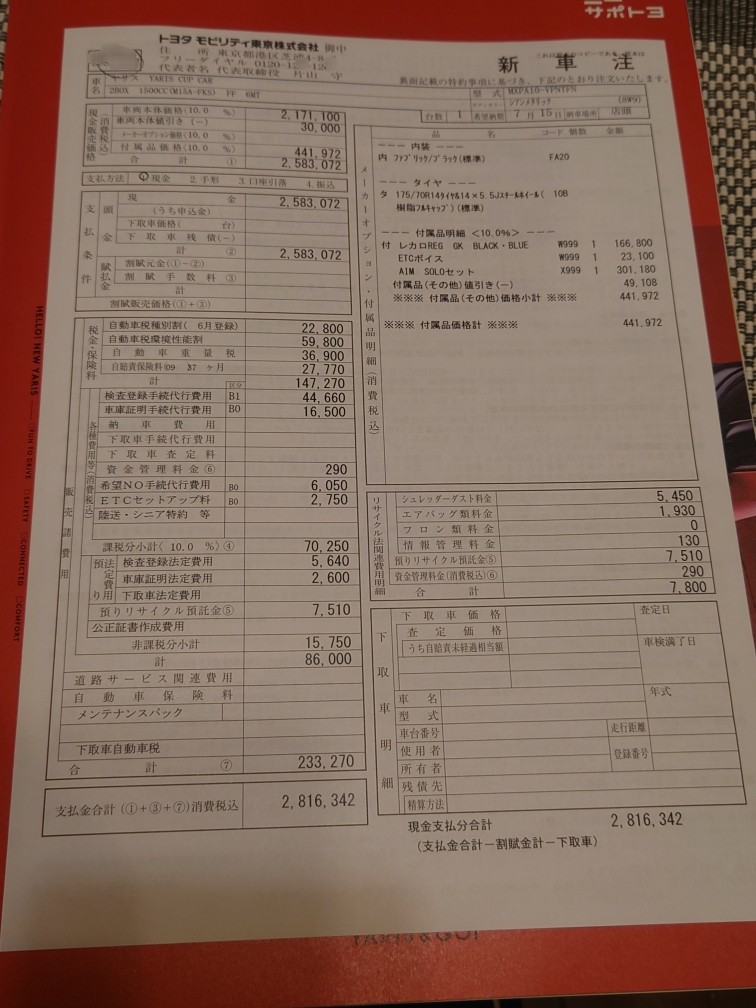 サポトヨ
トヨタ モビリティ東京株式会社 御中
住 所 東京都港区芝浦4-8-
フリーダイヤル 0120-12
代表者名 代表取締役 片山 守
新 車 注
裏面記載の特約事項に基づき、下記のとおり注文いたします。
車名 ヤリス YARIS CUP CAR
2BOX 1500CC(M15A-FKS) 6MT
型 式 MXPA10-
シアンメタリック (8W9)
台数 1 希望納期 7月 15日 納車場所 店頭
現金販売価格 (消費税込)
車両本体価格(10.0 %) 2,171,100
車両本体値引き(-) 30,000
メーカーオプション価格(10.0 %)
付属品価格(10.0 %) 441,972
合 計 ① 2,583,072
支払方法 1.現金 2.手形 3.口座引落 4.振込
支払条件
頭金
現 金 2,583,072
(うち申込金)
下取車価格( 台)
下取車残債(-)
計 ② 2,583,072
賦払金
割賦元金(①-②)
割賦手数料 ③
計
割賦販売価格(①+③)
税金・保険料
自動車税種別割( 6月登録) 22,800
自動車税環境性能割 59,800
自動車重量税 36,900
自賠責保険料(09 37 ヶ月 27,770
計 147,270
区分
販売諸費用
各種費用等(消費税込)
検査登録手続代行費用 B1 44,660
車庫証明手続代行費用 B0 16,500
納車費用
下取車手続代行費用
下取車査定料
資金管理料金⑥ 290
希望NO手続代行費用 B0 6,050
ETCセットアップ料 B0 2,750
陸送・シニア特約 等
課税分小計(10.0 %)④ 70,250
預り法定費用
検査登録法定費用 5,640
車庫証明法定費用 2,600
下取車法定費用
預りリサイクル預託金⑤ 7,510
公正証書作成費用
非課税分小計 15,750
計 86,000
道路サービス関連費用
自動車保険料
メンテナンスパック
下取車自動車税
合 計 ⑦ 233,270
支払金合計(①+③+⑦)消費税込 2,816,342
メーカーオプション・付属品明細(消費税込)
品 名 コード 個数 金額
--- 内装 ---
内 ファブリック/ブラック(標準) FA20
--- タイヤ ---
タ 175/70R14タイヤ&14×5.5Jスチールホイール( 10B
樹脂フルキャップ)(標準)
--- 付属品明細 <10.0%> ---
付 レカロREG GK BLACK・BLUE W999 1 166,800
ETCボイス W999 1 23,100
AIM SOLOセット X999 1 301,180
付属品(その他)値引き(-) 49,108
※※※ 付属品(その他)価格小計 ※※※ 441,972
※※※ 付属品価格計 ※※※ 441,972
リサイクル法関連費用明細
シュレッダーダスト料金 5,450
エアバッグ類料金 1,930
フロン類料金 0
情報管理料金 130
預りリサイクル預託金⑤ 7,510
資金管理料金(消費税込)⑥ 290
合 計 7,800
下取車明細
下取車価格 査定日
査定価格
うち自賠責未経過相当額 車検満了日
車 名 年式
型 式
車台番号 走行距離
使用者 登録番号
所有者
残債先
精算方法
現金支払分合計 2,816,342
(支払金合計-割賦金計-下取車)
HELLO! NEW YARIS FUN TO DRIVE SAFETY CONNECTED COMFORT